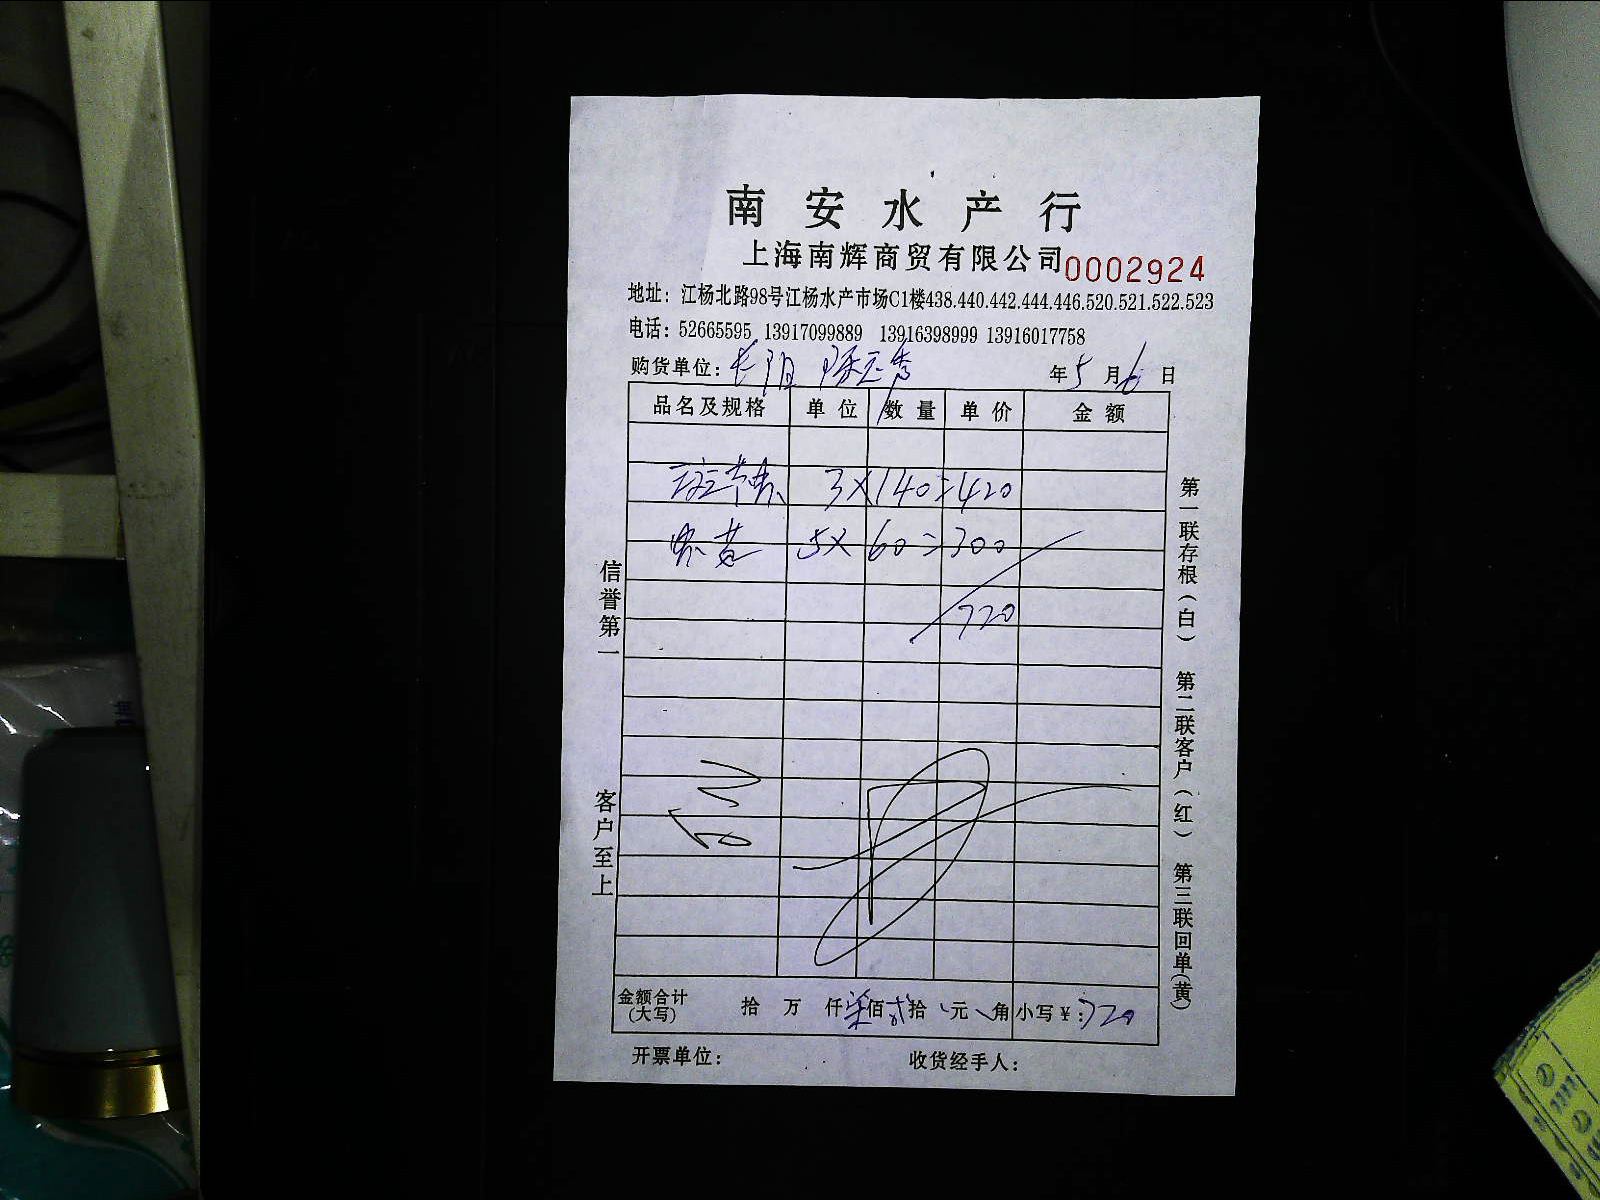 南安水产行
上海南辉商贸有限公司 0002924
地址：江杨北路98号江杨水产市场C1楼438.440.442.444.446.520.521.522.523
电话：52665595 13917099889 13916398999 13916017758
购货单位：长阳 年5月6日
品名及规格 单位 数量 单价 金额
3×140=420
5×60=300
720
信誉第一
客户至上
第一联存根（白） 第二联客户（红） 第三联回单（黄）
金额合计（大写） 拾 万 仟柒佰贰拾 元 角 小写￥：720
开票单位： 收货经手人：